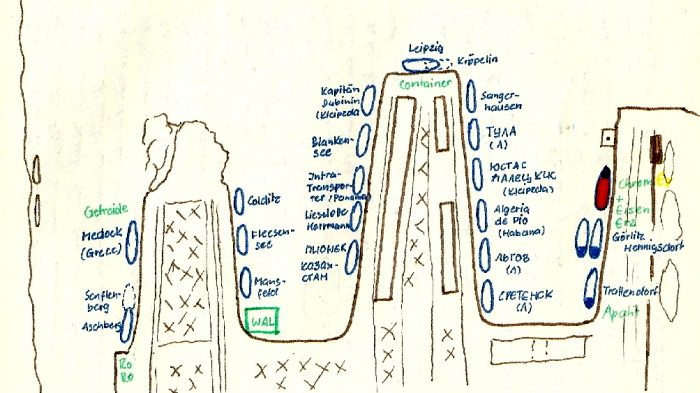 Leipzig
Kröpelin
Container
Kapitän
Dubinin
(Kleipeda)
Blanken-
see
Intra-
Transpor-
ter (Panama)
Lieselotte
Herrmann
ПИОНЕР
КАЗАХ-
СТАН
Sanger-
hausen
ТУЛА
(Л)
ЮСТАС
ПАЛЕЦКИС
(Kleipeda)
Algeria
de Pio
(Habana)
ЛЬГОВ
(Л)
СРЕТЕНСК
(Л)
Getreide
Medock
(Grece)
Senften-
berg
Aschberg
RO
RO
Colditz
Fleesen-
see
Mans-
feld
WAL
Chrom
+
Eisen
Erz
Görlitz
Hennigsdorf
Trattendorf
Apatit